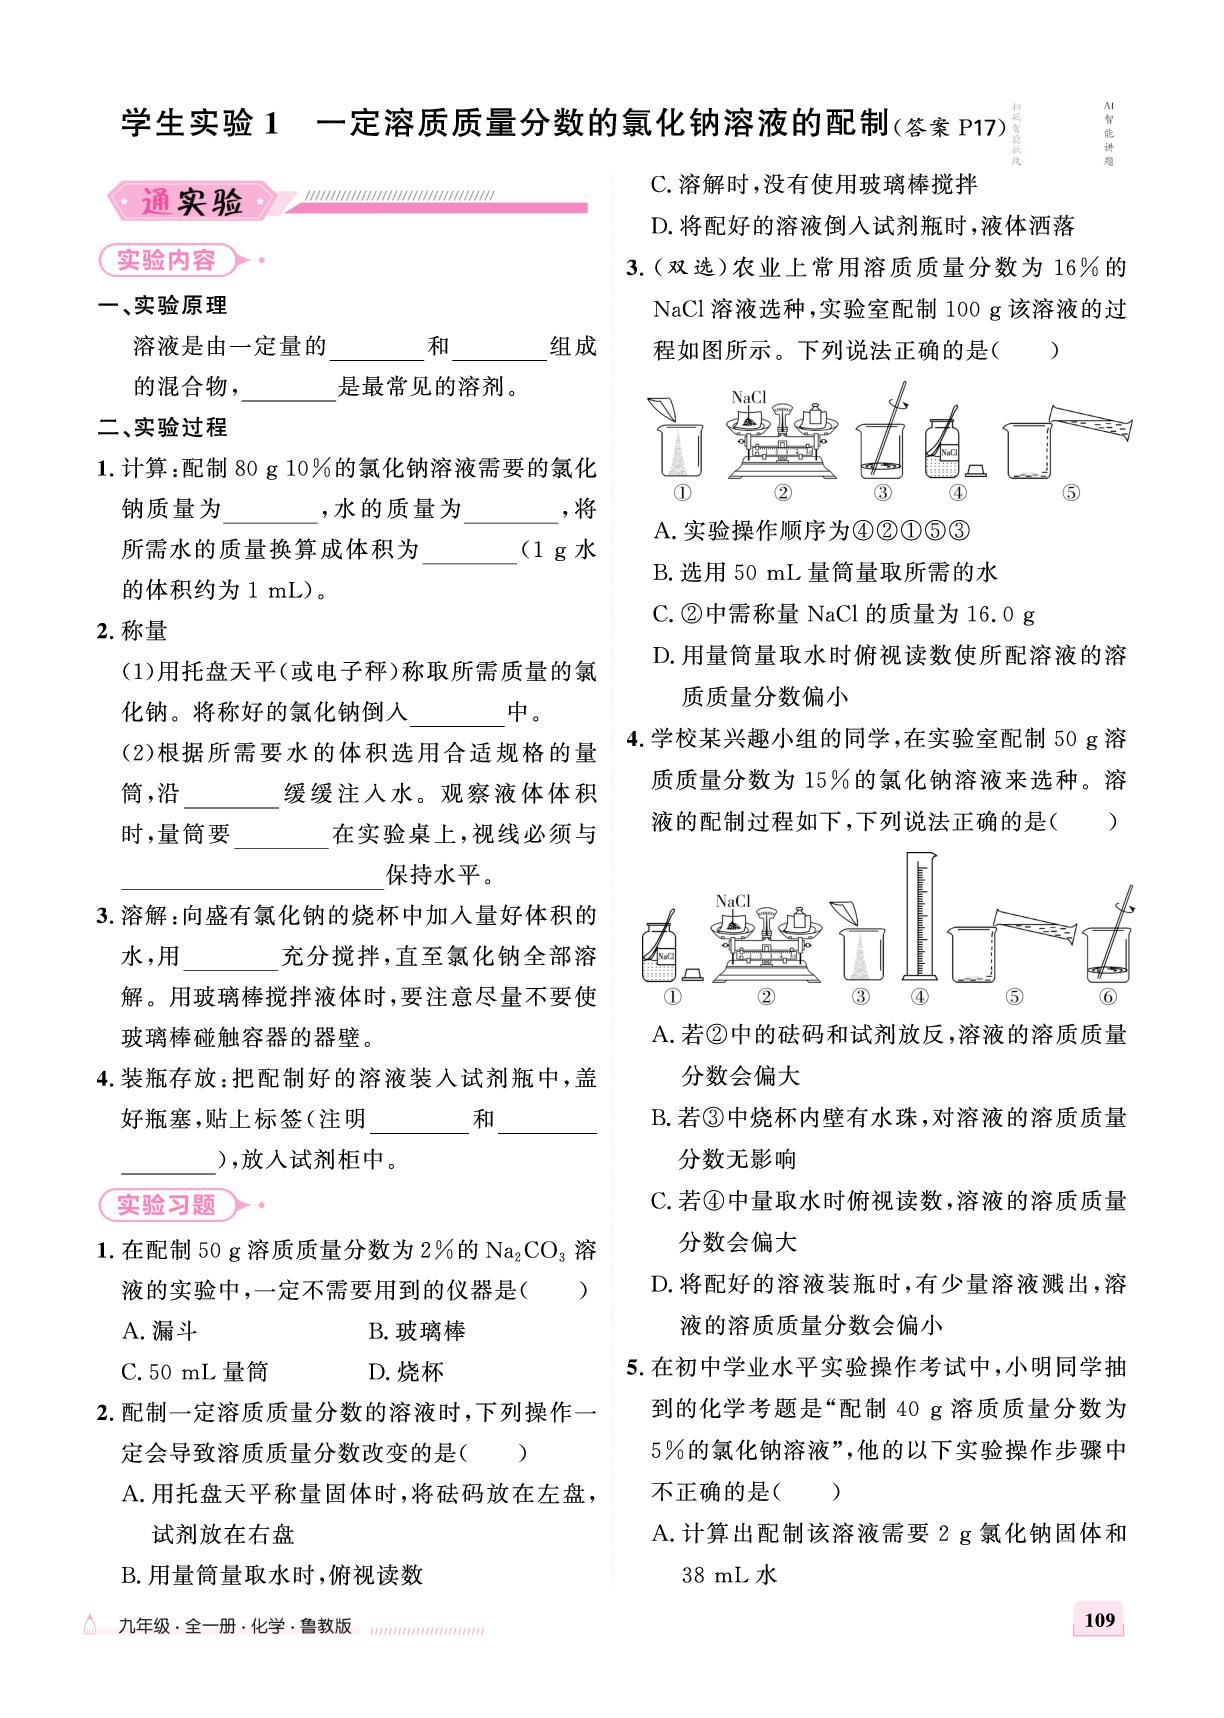 学生实验1 一定溶质质量分数的氯化钠溶液的配制(答案 P17)
扫码智能批改
AI智能讲题
通实验
实验内容
一、实验原理
溶液是由一定量的________和________组成
的混合物,________是最常见的溶剂。
二、实验过程
1. 计算:配制 80 g 10%的氯化钠溶液需要的氯化
钠质量为________,水的质量为________,将
所需水的质量换算成体积为________(1 g 水
的体积约为 1 mL)。
2. 称量
(1)用托盘天平(或电子秤)称取所需质量的氯
化钠。将称好的氯化钠倒入________中。
(2)根据所需要水的体积选用合适规格的量
筒,沿________缓缓注入水。观察液体体积
时,量筒要________在实验桌上,视线必须与
______________________保持水平。
3. 溶解:向盛有氯化钠的烧杯中加入量好体积的
水,用________充分搅拌,直至氯化钠全部溶
解。用玻璃棒搅拌液体时,要注意尽量不要使
玻璃棒碰触容器的器壁。
4. 装瓶存放:把配制好的溶液装入试剂瓶中,盖
好瓶塞,贴上标签(注明________和________
________),放入试剂柜中。
实验习题
1. 在配制 50 g 溶质质量分数为 2%的 Na₂CO₃ 溶
液的实验中,一定不需要用到的仪器是(  )
A. 漏斗 B. 玻璃棒
C. 50 mL 量筒 D. 烧杯
2. 配制一定溶质质量分数的溶液时,下列操作一
定会导致溶质质量分数改变的是(  )
A. 用托盘天平称量固体时,将砝码放在左盘,
试剂放在右盘
B. 用量筒量取水时,俯视读数
C. 溶解时,没有使用玻璃棒搅拌
D. 将配好的溶液倒入试剂瓶时,液体洒落
3. (双选)农业上常用溶质质量分数为 16%的
NaCl 溶液选种,实验室配制 100 g 该溶液的过
程如图所示。下列说法正确的是(  )
NaCl
NaCl
① ② ③ ④ ⑤
A. 实验操作顺序为④②①⑤③
B. 选用 50 mL 量筒量取所需的水
C. ②中需称量 NaCl 的质量为 16.0 g
D. 用量筒量取水时俯视读数使所配溶液的溶
质质量分数偏小
4. 学校某兴趣小组的同学,在实验室配制 50 g 溶
质质量分数为 15%的氯化钠溶液来选种。溶
液的配制过程如下,下列说法正确的是(  )
NaCl
NaCl
① ② ③ ④ ⑤ ⑥
A. 若②中的砝码和试剂放反,溶液的溶质质量
分数会偏大
B. 若③中烧杯内壁有水珠,对溶液的溶质质量
分数无影响
C. 若④中量取水时俯视读数,溶液的溶质质量
分数会偏大
D. 将配好的溶液装瓶时,有少量溶液溅出,溶
液的溶质质量分数会偏小
5. 在初中学业水平实验操作考试中,小明同学抽
到的化学考题是“配制 40 g 溶质质量分数为
5%的氯化钠溶液”,他的以下实验操作步骤中
不正确的是(  )
A. 计算出配制该溶液需要 2 g 氯化钠固体和
38 mL 水
九年级·全一册·化学·鲁教版
109